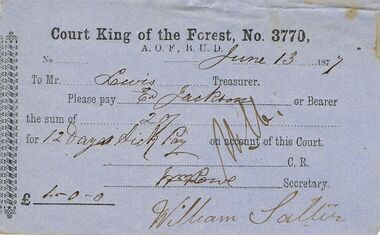 Court King of the Forest, No. 3770,
A. O. F., B. U. D.
No June 13 1877
To Mr. Lewis Treasurer.
Please pay Ed Jackson or Bearer
the sum of
for 12 Days Sick Pay on account of this Court.
C. R.
Secretary.
£
William Salter